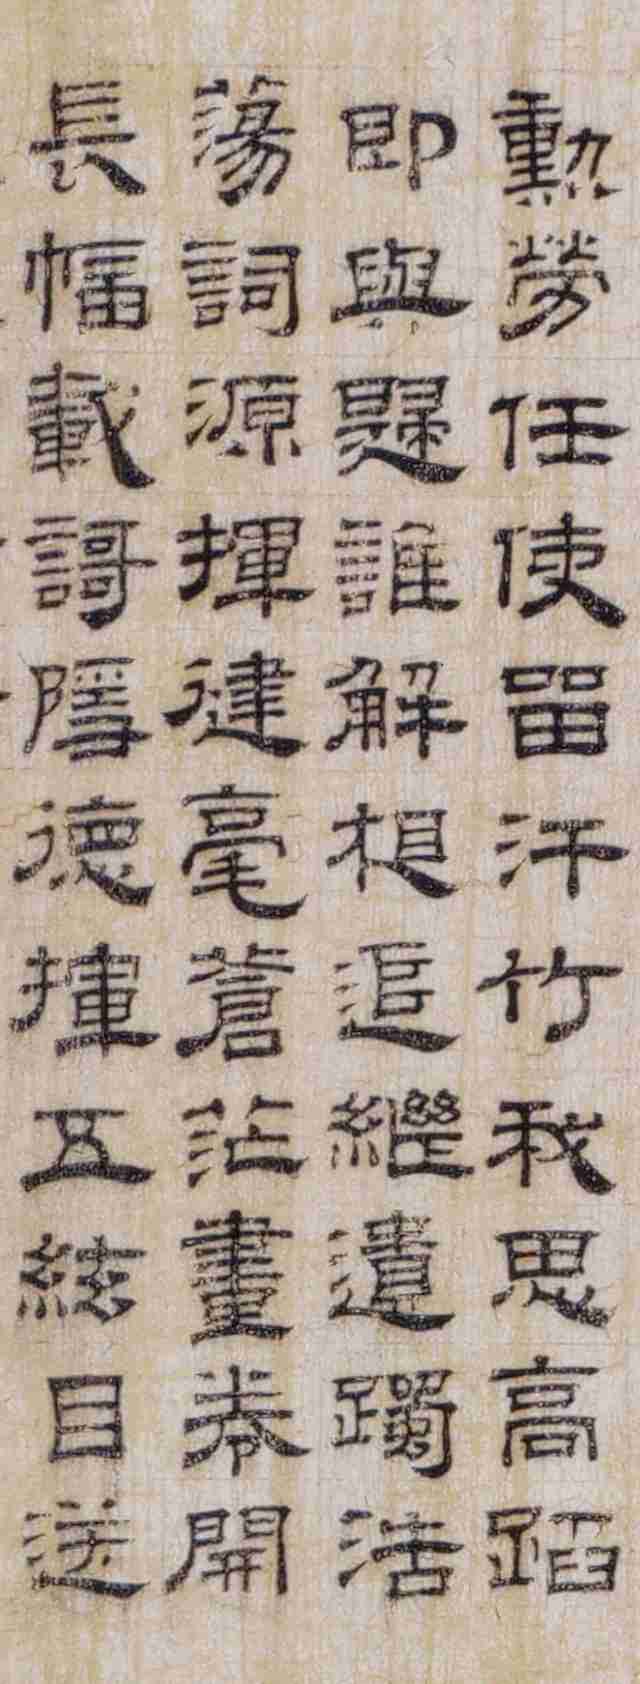 勳勞任使留汗竹我思高蹈
即與歸誰解想追繼遺躅浩
蕩詞源揮徤毫蒼茫畫卷開
長幅載謌隱德揮五絃目送